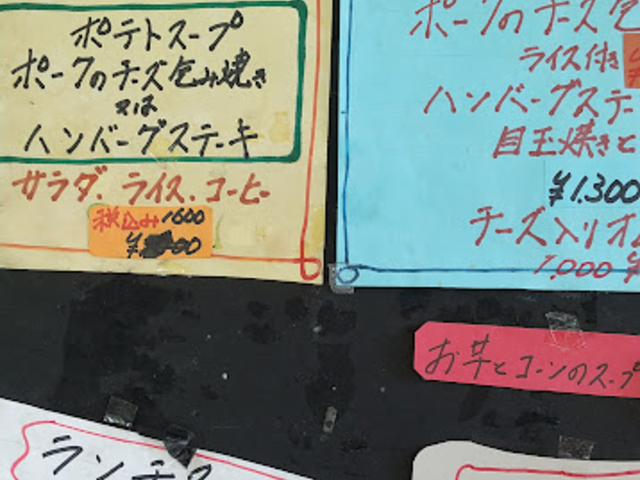 ポテトスープ
ポークのチーズ包み焼き
又は
ハンバーグステーキ
サラダ、ライス、コーヒー
税込み1600
ポークのチーズ包
ライス付き
ハンバーグステー
目玉焼きと
¥1,300
チーズ入りオム
1,000
お芋とコーンのスープ
ランチ